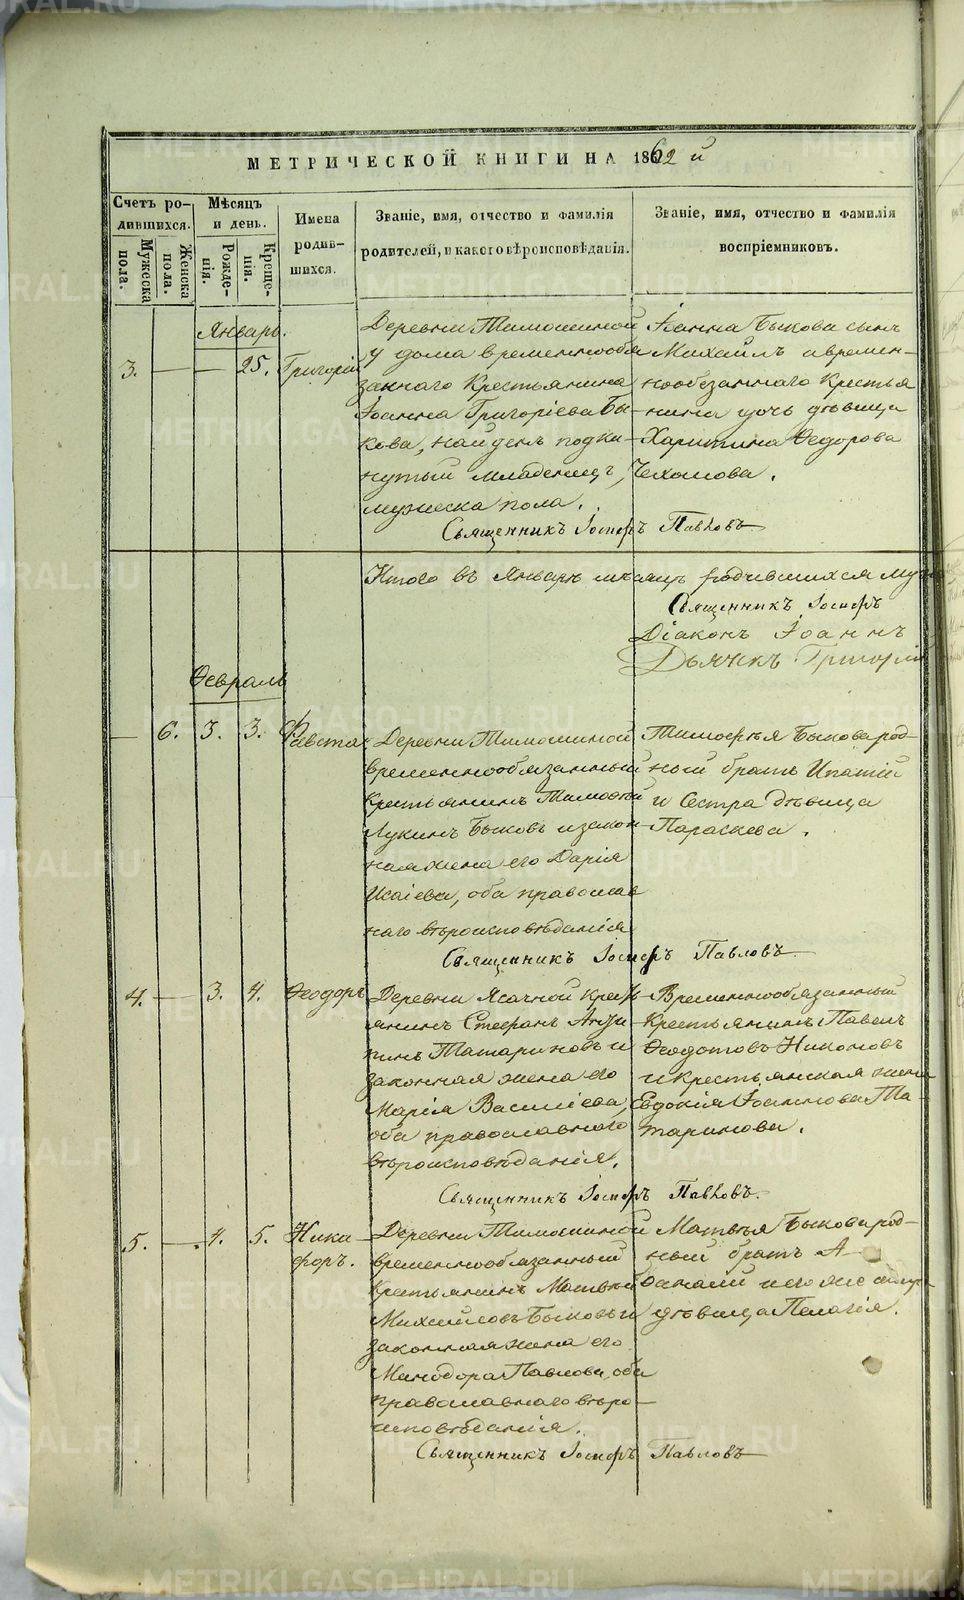 МЕТРИЧЕСКОЙ КНИГИ НА 1862 й
Счетъ ро-
дившихся.
Мужеска
пола.
Женска
пола.
Мѣсяцъ
и день.
Рожде-
нія.
Креще-
нія.
Имена
родив-
шихся.
Званіе, имя, отчество и фамилія
родителей, и какого вѣроисповѣданія.
Званіе, имя, отчество и фамилія
воспріемниковъ.
Январь.
3. — — 25. Григорій
Деревни Тимошиной
у дома временнообя
заннаго Крестьянина
Іоанна Григоріева Бы-
кова, найденъ подки-
нутый младенецъ,
мужеска пола.
Іоанна Быкова сынъ
Михаилъ а времен-
нообязаннаго Крестья
нина дочь дѣвица
Харитина Ѳедорова
Чехомова.
Священникъ Іосифъ Павловъ
Итого въ Январѣ мѣсяцѣ родившихся муж
Священникъ Іосифъ
Діаконъ Іоаннъ
Дьячекъ Григорій
Февраль
— 6. 3. 3. Фавста
Деревни Тимошиной
временнообязанный
крестьянинъ Тимофей
Лукинъ Быковъ и закон-
ная жена его Дарія
Исаіева, оба православ
наго вѣроисповѣданія
Тимофея Быкова род-
ный братъ Ипатій
и Сестра дѣвица
Параскева.
Священникъ Іосифъ Павловъ
4. — 3. 4. Ѳеодоръ
Деревни Ясачной Крест
янинъ Стефанъ
Татариновъ и
законная жена его
Марія Василіева,
оба православнаго
вѣроисповѣданія.
Временнообязанный
крестьянинъ Павелъ
Ѳеодотовъ Никоновъ
и крестьянская жена
Евдокія Іоаннова Та-
таринова.
Священникъ Іосифъ Павловъ.
5. — 4. 5. Ники
форъ.
Деревни Тимошиной
временнообязанный
крестьянинъ Матвей
Михайловъ Быковъ и
законная жена его
Минодора Павлова, оба
православнаго вѣро-
исповѣданія.
Матвѣя Быкова род-
ный братъ А-
ѳанасій и его же сестра
дѣвица Пелагія.
Священникъ Іосифъ Павловъ
METRIKI.GASO-URAL.RU